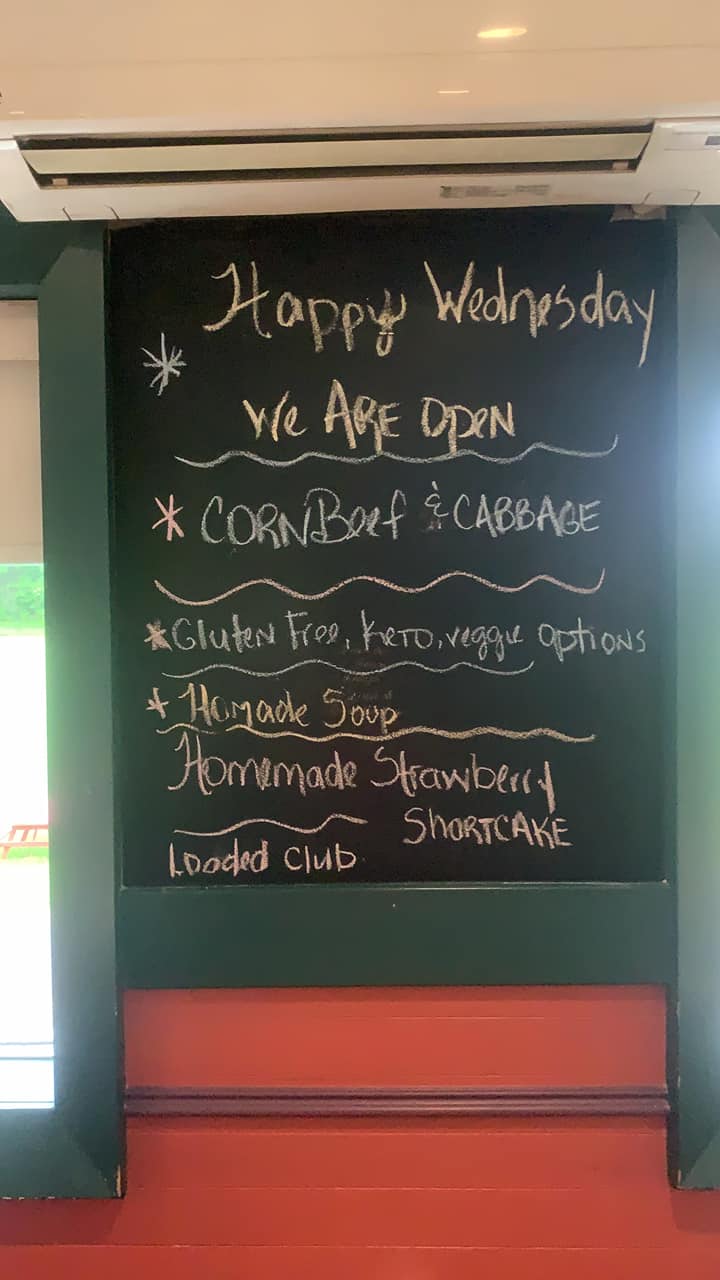 Happy Wednesday
We ARE OPEN
* CORN Beef & CABBAGE
* Gluten Free, Keto, veggie options
* Homade Soup
Homemade Strawberry
ShORTCAKE
Loaded Club